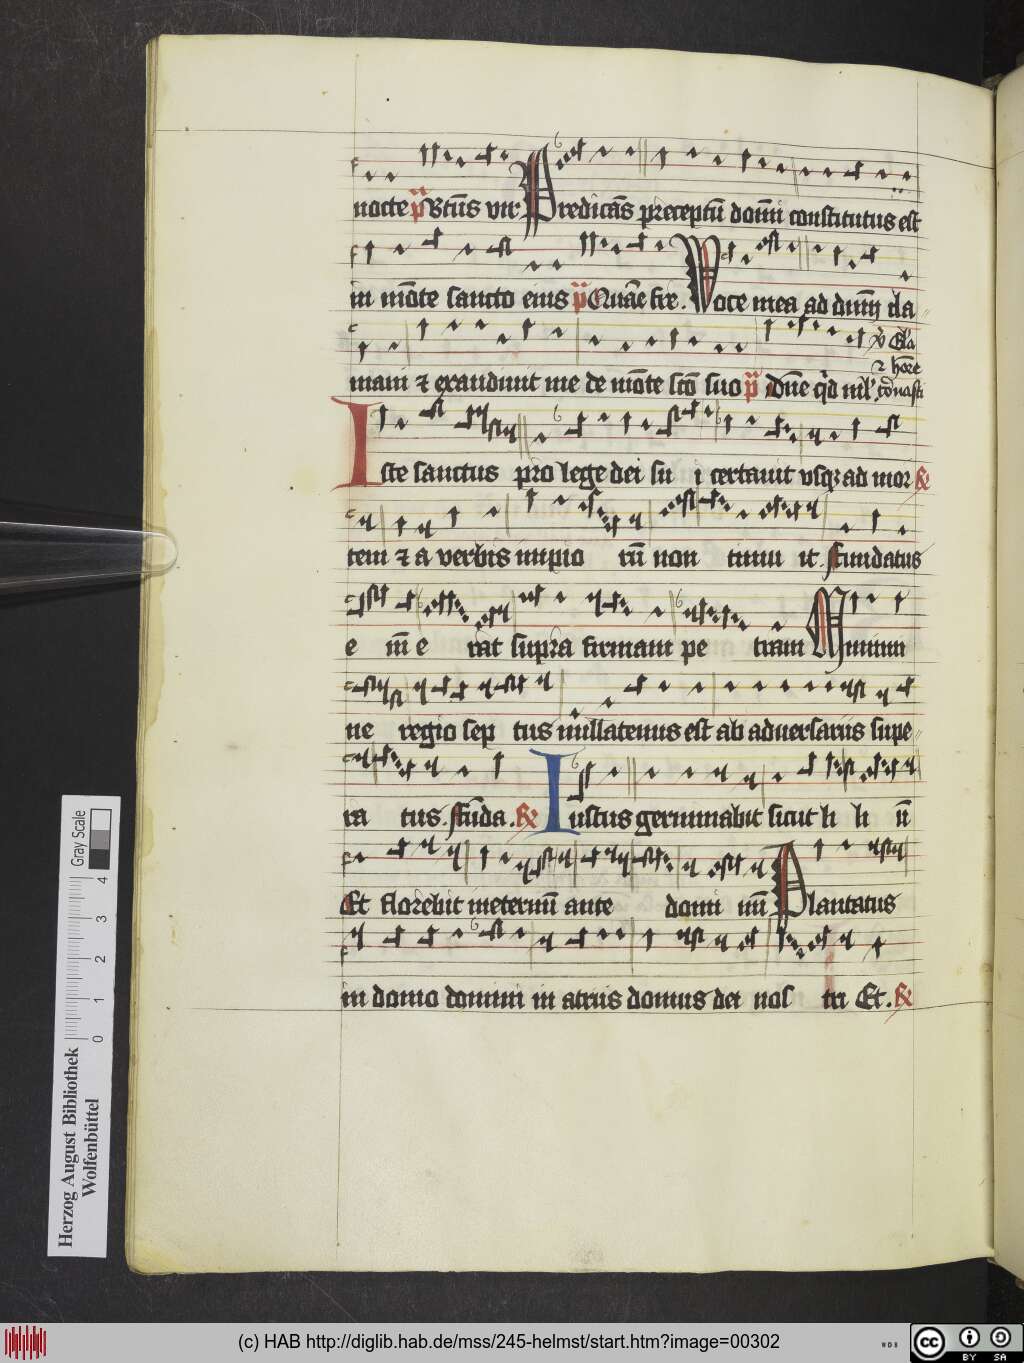 nocte p̄s Btūs vir Predicās preceptū domini constitutus est
in mōte sancto eius p̄s Quare fre. Voce mea ad dnm cla
mavi ⁊ exaudivit me de mōte scō suo p̄s Dne qd
⁊ hōre
Iste sanctus pro lege dei su i certavit vsqz ad mor
tem ⁊ a verbis impio rū non timu it. fundatus
e nī e rat supra firmam pe tram Munimi
ne regio sep tus nullatenus est ab adversariis supe
ra tus. fūda.
Iustus germinabit sicut li li ū
Et florebit ineternū ante domi nū Plantatus
in domo domini in atriis domus dei nos tri Et.
Gray Scale
4
3
2
1
0
Herzog August Bibliothek
Wolfenbüttel
(c) HAB http://diglib.hab.de/mss/245-helmst/start.htm?image=00302
WDB
cc
BY SA